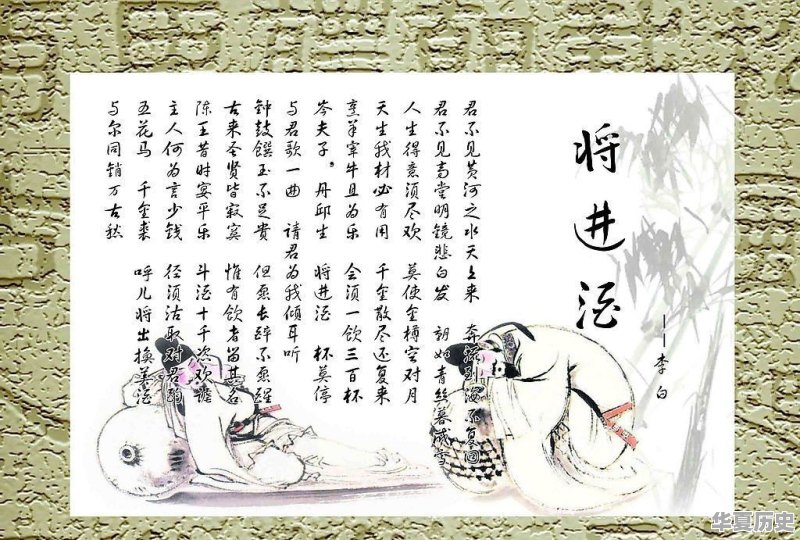 将进酒
——李白
君不见黄河之水天上来 奔流到海不复回
君不见高堂明镜悲白发 朝如青丝暮成雪
人生得意须尽欢 莫使金樽空对月
天生我材必有用 千金散尽还复来
烹羊宰牛且为乐 会须一饮三百杯
岑夫子。丹邱生 将进酒 杯莫停
与君歌一曲 请君为我倾耳听
钟鼓馔玉不足贵 但愿长醉不愿醒
古来圣贤皆寂寞 惟有饮者留其名
陈王昔时宴平乐 斗酒十千恣欢谑
主人何为言少钱 径须沽取对君酌
五花马 千金裘 呼儿将出换美酒
与尔同销万古愁
华夏历史